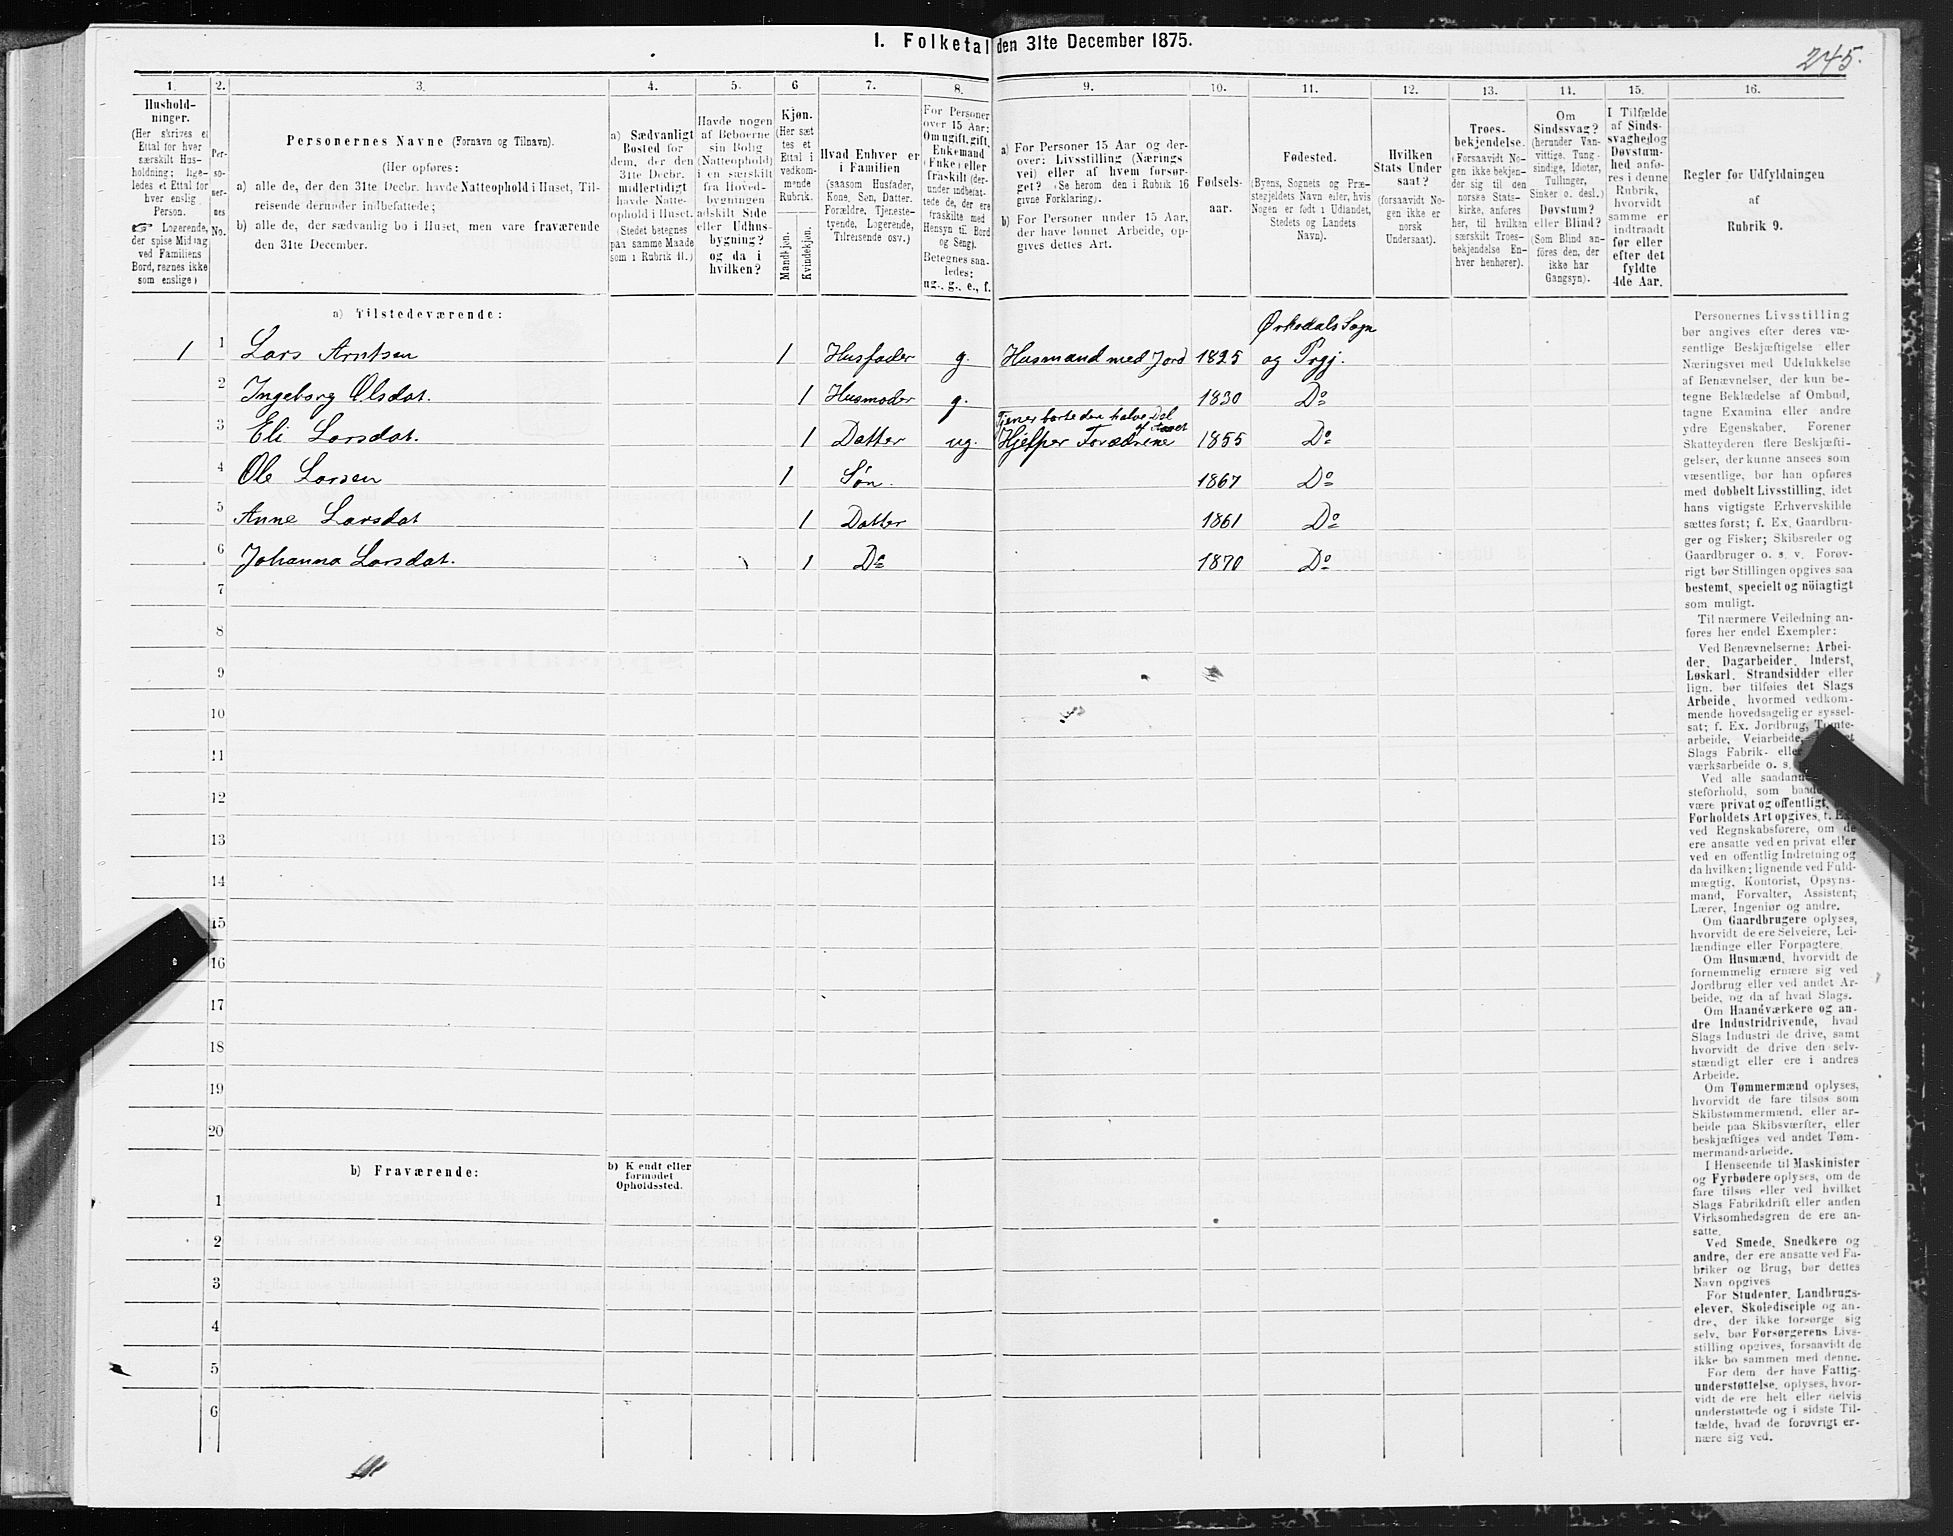 1. Folketal den 31te December 1875.
245.
1.
2.
3.
4.
5.
6
7.
8.
9.
10.
11.
12.
13.
14.
15.
16.
Hushold-
ninger.
(Her skrives et
Ettal for hver
særskilt Hus-
holdning; lige-
ledes et Ettal for
hver enslig
Person.
☞ Logerende,
der spise Middag
ved Familiens
Bord, regnes ikke
som enslige)
Per-
so-
ner-
nes
No.
Personernes Navne (Fornavn og Tilnavn).
(Her opføres:
a) alle de, der den 31te Decbr. havde Natteophold i Huset, Til-
reisende derunder indbefattede;
b) alle de, der sædvanlig bo i Huset, men vare fraværende
den 31te December.
a) Sædvanligt
Bosted for
dem, der den
31te Decbr.
midlertidigt
havde Natte-
ophold i Huset.
(Stedet betegnes
paa samme Maade
som i Rubrik 11.)
Havde nogen
af Beboerne
sin Bolig
(Natteophold)
i en særskilt
fra Hoved-
bygningen
adskilt Side
eller Udhus-
bygning?
og da i
hvilken?
Kjøn.
(Her sæt-
tes et
Ettal i
vedkom-
mende
Rubrik.
Mandkjøn.
Kvindekjøn.
Hvad Enhver er
i Familien
(saasom Husfader,
Kone, Søn, Datter.
Forældre, Tjeneste-
tyende, Logerende,
Tilreisende osv.)
For Personer
over 15 Aar:
Om ugift, gift,
Enkemand
(Enke) eller
fraskilt (der-
under indbefat-
tede de, der ere
fraskilte med
Hensyn til Bord
og Seng).
Betegnes saa-
ledes:
ug., g., e., f.
a) For Personer 15 Aar og der-
over: Livsstilling (Nærings-
vei) eller af hvem forsør-
get? (Se herom den i Rubrik 16
givne Forklaring).
b) For Personer under 15 Aar,
der have lønnet Arbeide, op-
gives dettes Art.
Fødsels-
aar.
Fødested.
(Byens, Sognets og Præ-
stegjeldets Navn eller, hvis
Nogen er født i Udlandet,
Stedets og Landets
Navn).
Hvilken
Stats Under
saat?
(forsaavidt No-
gen ikke er
norsk
Undersaat).
Troes-
bekjendelse.
(Forsaavidt No-
gen ikke bekjen-
der sig til den
norske Stats-
kirke, anføres
her, til hvilken
særskilt Troes-
bekjendelse En-
hver henhører).
Om
Sindssvag?
(herunder Van-
vittige, Tung-
sindige, Idioter,
Tullinger,
Sinker o. desl.)
Døvstum?
eller Blind?
(Som Blind an-
føres den, der
ikke har
Gangsyn).
I Tilfælde
af Sinds-
svaghed og
Døvstum-
hed anfø-
res i denne
Rubrik,
hvorvidt
samme er
indtraadt
før eller
efter det
fyldte
4de Aar.
Regler for Udfyldningen
af
Rubrik 9.
a) Tilstedeværende:
Ørkedals Sogn
1 1 Lars Arntsen 1 Husfader g. Husmand med Jord 1825 og Prgj.
2 Ingeborg Olsdat. 1 Husmoder g. 1830 Do
Tjener borte den halve Del
af Aaret
3 Eli Larsdat. 1 Datter ug. Hjelper Forældrene 1855 Do
4 Ole Larsen 1 Søn. 1867 Do
5 Anne Larsdat 1 Datter 1861 Do
6 Johanna Larsdat. 1 Do 1870 Do
7
8
9
10
11
12
13
14
15
16
17
18
19
20
b) Fraværende:
b) Kendt eller
formodet
Opholdssted.
1
2
3
4
5
6
Personernes Livsstilling
bør angives efter deres væ-
sentlige Beskjæftigelse eller
Næringsvei med Udelukkelse
af Benævnelser, der kun be-
tegne Beklædelse af Ombud,
tagne Examina eller andre
ydre Egenskaber. Forener
Skatteyderen flere Beskjæfti-
gelser, der kunne ansees som
væsentlige, bør han opføres
med dobbelt Livsstilling, idet
hans vigtigste Erhvervskilde
sættes først; f. Ex. Gaardbru-
ger og Fisker; Skibsreder og
Gaardbruger o. s. v. Forøv-
rigt bør Stillingen opgives saa
bestemt, specielt og nöiagtigt
som muligt.
Til nærmere Veiledning an-
føres her endel Exempler:
Ved Benævnelserne: Arbei-
der, Dagarbeider, Inderst,
Løskarl, Strandsidder eller
lign. bør tilføies det Slags
Arbeide, hvormed vedkom-
mende hovedsagelig er syssel-
sat; f. Ex. Jordbrug, Tomte-
arbeide, Veiarbeide,
Slags Fabrik- eller
værksarbeide o. s.
Ved alle saadanne
steforhold, som baade
være privat og offentligt,
Forholdets Art opgives, f. Ex.
ved Regnskabsførere, om de
ere ansatte ved en privat eller
ved en offentlig Indretning og
da hvilken; lignende ved Fuld-
mægtig, Kontorist, Opsyns-
mand, Forvalter, Assistent,
Lærer, Ingeniør og andre.
Om Gaardbrugere oplyses,
hvorvidt de ere Selveiere, Lei-
lændinge eller Forpagtere.
Om Husmænd, hvorvidt de
fornemmelig ernære sig ved
Jordbrug eller ved andet Ar-
beide, og da af hvad Slags.
Om Haandværkere og an-
dre Industridrivende, hvad
Slags Industri de drive, samt
hvorvidt de drive den selv-
stændigt eller ere i andres
Arbeide.
Om Tømmermænd oplyses,
hvorvidt de fare tilsøs som
Skibstømmermænd, eller ar-
beide paa Skibsværfter, eller
beskjæftiges ved andet Tøm-
mermandsarbeide.
I Henseende til Maskinister
og Fyrbødere oplyses, om de
fare tilsøs eller ved hvilket
Slags Fabrikdrift eller anden
Virksomhedsgren de ere an-
satte.
Ved Smede, Snedkere og
andre, der ere ansatte ved Fa-
briker og Brug, bør dettes
Navn opgives
For Studenter, Landbrugs-
elever, Skoledisciple og an-
dre, der ikke forsørge sig
selv, bør Forsørgerens Livs-
stilling opgives, forsaavidt de
ikke bo sammen med denne.
For dem, der have Fattig-
understøttelse, oplyses, hvor-
vidt de ere helt eller delvis
understøttede og i sidste Til-
fælde, hvad de forøvrigt er-
nære sig ved.